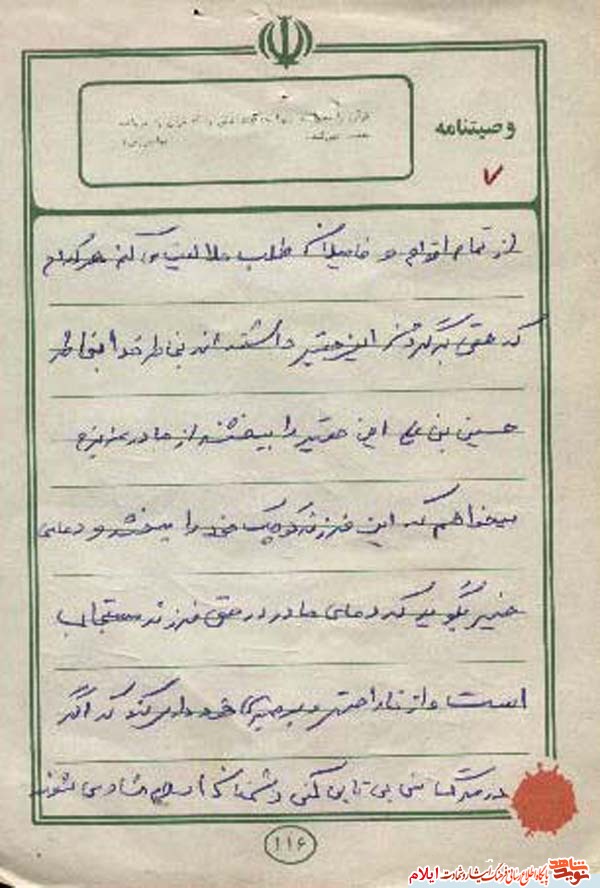 وصیتنامه
۷
از تمام اقوام و فامیلان طلب حلالیت می کنم هر کدام
که حقی بگردن این حقیر داشته اند بخاطر خدا بخاطر
حسین بن علی این حقیر را ببخشند از مادر عزیزم
میخواهم که این فرزند کوچک خود را ببخشد و دعای
خیر بگوید که دعای مادر در حق فرزند مستجاب
است و از ناراحتی و بی صبری خودداری کند که اگر
در مرگ من بی تابی کنی دشمنان اسلام شاد می شوند
۱۱۶
نوید شاهد
پایگاه اطلاع رسانی فرهنگ ایثار و شهادت ایلام